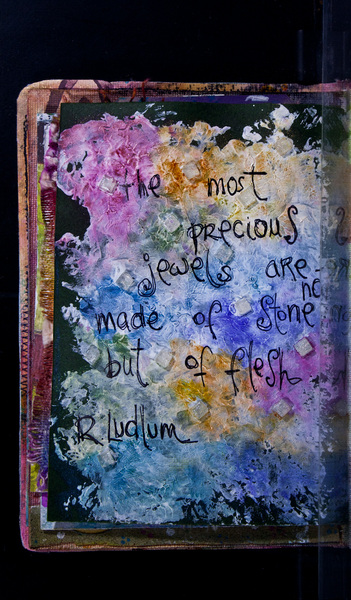 the most
precious
jewels are
not
made of stone
but of flesh
R Ludlum